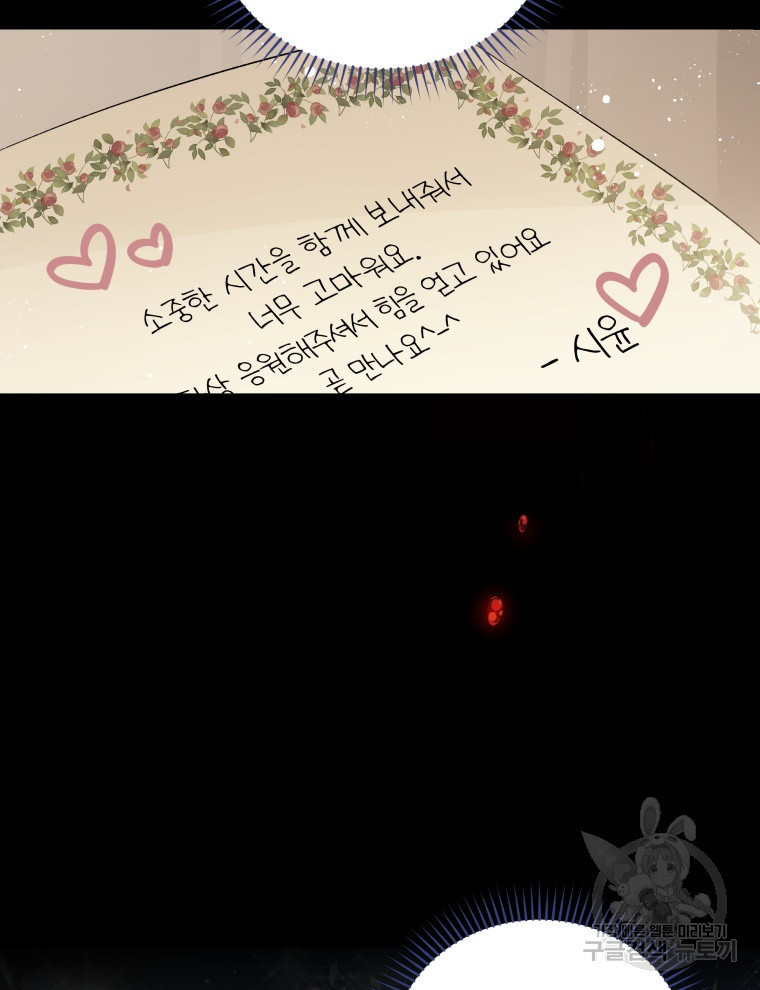 소중한 시간을 함께 보내줘서
너무 고마워요.
응원해주셔서 힘을 얻고 있어요
곧 만나요^-^
- 시윤
가장 빠른 웹툰 미리보기
구글검색 뉴토끼